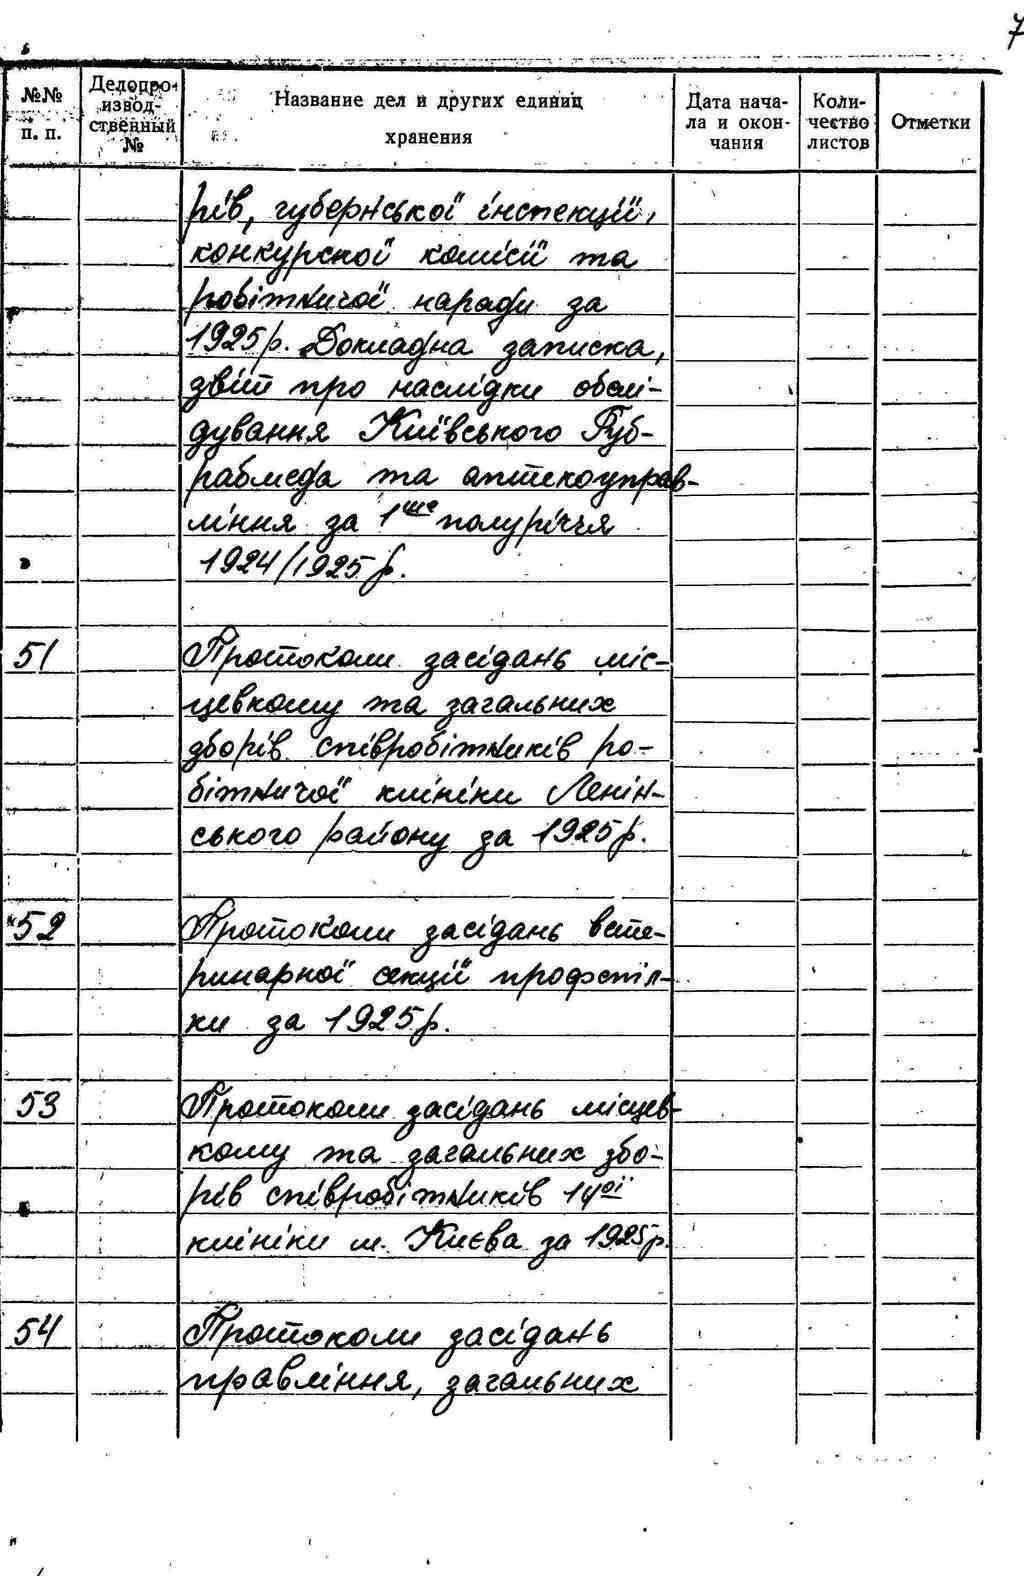 7
№№ п. п.
Делопроизводственный №
Название дел и других единиц хранения
Дата начала и окончания
Количество листов
Отметки
рів, губернської інспекції,
конкурсної комісії та
робітничої наради за
1925р. Докладна записка,
звіт про наслідки обслі-
дування Київського Губ-
рабмеда та аптекоуправ-
ління за 1ше полуріччя
1924/1925р.
51 Протоколи засідань міс-
цевкому та загальних
зборів співробітників ро-
бітничої клініки Ленін-
ського району за 1925р.
52 Протоколи засідань вете-
ринарної секції профспіл-
ки за 1925р.
53 Протоколи засідань місцев-
кому та загальних збо-
рів співробітників 14ої
клініки м. Києва за 1925р.
54 Протоколи засідань
правління, загальних